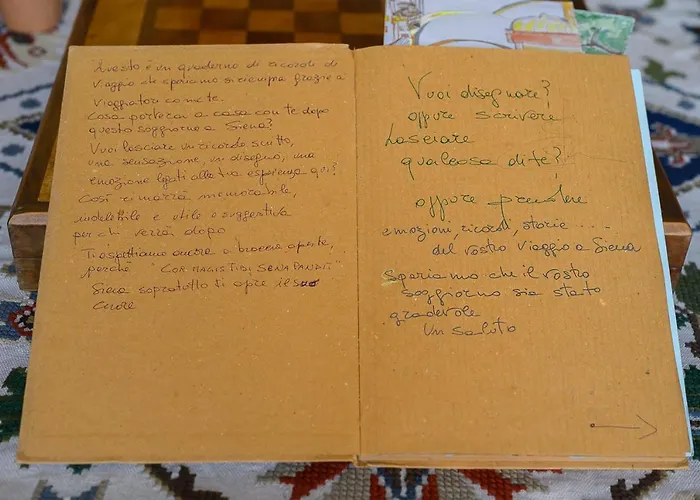 Questo è un quaderno di ricordi di
Viaggio che speriamo si riempia grazie a
Viaggiatori come te.
Cosa porterai a casa con te dopo
questo soggiorno a Siena?
Vuoi lasciare un ricordo scritto,
una sensazione, un disegno, una
emozione legati alla tua esperienza qui?
Così rimarrà memorabile,
indelebile e utile o suggestiva
per chi verrà dopo
Ti aspettiamo ancora a braccia aperte,
perché "COR MAGIS TIBI SENA PANDIT"
Siena sopratutto ti apre il suo
cuore
Vuoi disegnare?
oppure scrivere
Lasciare
qualcosa di te?
oppure prendere
emozioni, ricordi, storie ....
del vostro Viaggio a Siena
Speriamo che il vostro
soggiorno sia stato
gradevole
Un saluto